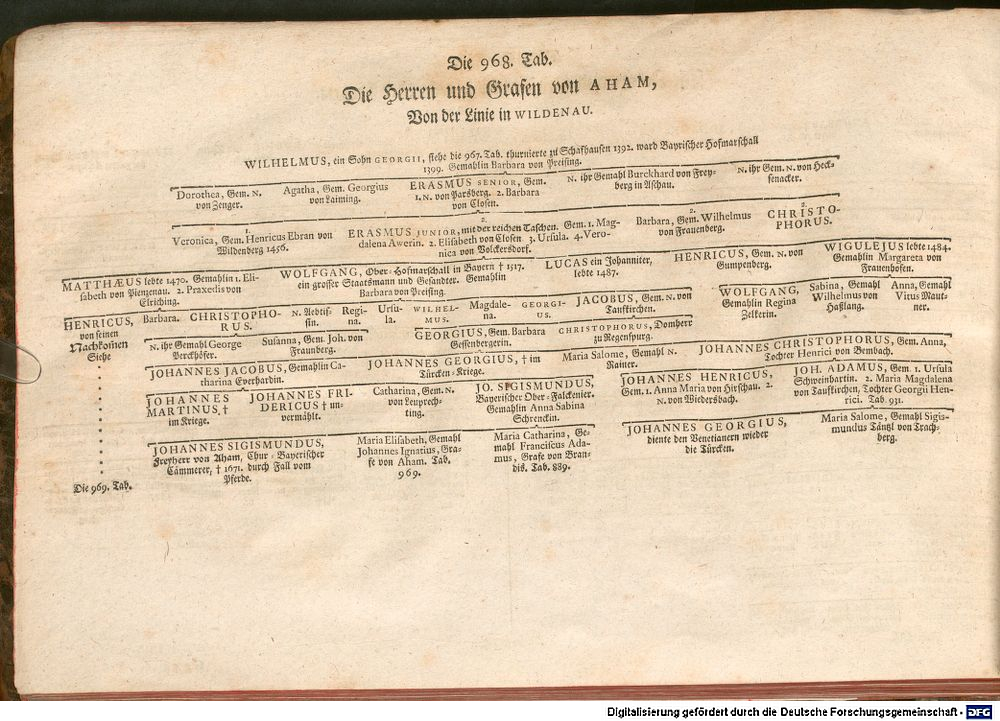 Die 968. Tab.
Die Herren und Grafen von AHAM,
Von der Linie in WILDENAU.
WILHELMUS, ein Sohn GEORGII, siehe die 967. Tab. thurnierte zu Schafhausen 1392. ward Bayrischer Hofmarschall
1399. Gemahlin Barbara von Preising.
Dorothea, Gem. N.
von Zenger.
Agatha, Gem. Georgius
von Laiming.
ERASMUS SENIOR, Gem.
1. N. von Parsberg. 2. Barbara
von Closen.
N. ihr Gemahl Burckhard von Frey-
berg in Aschau.
N. ihr Gem. N. von Heck-
senacker.
1.
Veronica, Gem. Henricus Ebran von
Wildenberg 1456.
2.
ERASMUS JUNIOR, mit der reichen Taschen. Gem. 1. Mag-
dalena Awerin. 2. Elisabeth von Closen 3. Ursula. 4. Vero-
nica von Volckersdorf.
2.
Barbara, Gem. Wilhelmus
von Frauenberg.
2.
CHRISTO-
PHORUS.
MATTHÆUS lebte 1470. Gemahlin 1. Eli-
sabeth von Pienzenau. 2. Praxedis von
Elriching.
WOLFGANG, Ober-Hofmarschall in Bayern † 1517.
ein grosser Staatsmann und Gesandter. Gemahlin
Barbara von Preising.
LUCAS ein Johanniter,
lebte 1487.
HENRICUS, Gem. N. von
Gumpenberg.
WIGULEJUS lebte 1484.
Gemahlin Margareta von
Frauenhofen.
HENRICUS,
von seinen
Nachkomen
Siehe
Barbara.
CHRISTOPHO-
RUS.
N. Aebtis-
sin.
Regi-
na.
Ursu-
la.
WILHEL-
MUS.
Magdale-
na.
GEORGI-
US.
JACOBUS, Gem. N. von
Taufkirchen.
WOLFGANG,
Gemahlin Regina
Zelkerin.
Sabina, Gemahl
Wilhelmus von
Haßlang.
Anna, Gemahl
Vitus Maut-
ner.
N. ihr Gemahl George
Perckhöfer.
Susanna, Gem. Joh. von
Fraunberg.
GEORGIUS, Gem. Barbara
Gessenbergerin.
CHRISTOPHORUS, Domherr
zu Regenspurg.
JOHANNES JACOBUS, Gemahlin Ca-
tharina Eberhardin.
JOHANNES GEORGIUS, † im
Türcken-Kriege.
Maria Salome, Gemahl N.
Rainer.
JOHANNES CHRISTOPHORUS, Gem. Anna,
Tochter Henrici von Bembach.
JOHANNES
MARTINUS, †
im Kriege.
JOHANNES FRI-
DERICUS † un-
vermählt.
Catharina, Gem. N.
von Leuprech-
ting.
JO. SIGISMUNDUS,
Bayerischer Ober-Falckenier.
Gemahlin Anna Sabina
Schrenckin.
JOHANNES HENRICUS,
Gem. 1. Anna Maria von Hirschau. 2.
N. von Wiedersbach.
JOH. ADAMUS, Gem. 1. Ursula
Schweinbartin. 2. Maria Magdalena
von Taufkirchen, Tochter Georgii Hen-
rici. Tab. 931.
JOHANNES SIGISMUNDUS,
Freyherr von Aham, Chur-Bayerischer
Cämmerer, † 1671. durch Fall vom
Pferde.
Maria Elisabeth, Gemahl
Johannes Ignatius, Gra-
fe von Aham. Tab.
969.
Maria Catharina, Ge-
mahl Franciscus Ada-
mus, Grafe von Bran-
dis. Tab. 889.
JOHANNES GEORGIUS,
diente den Venetianern wieder
die Türcken.
Maria Salome, Gemahl Sigis-
mundus Täntzl von Trach-
berg.
Die 969. Tab.
Digitalisierung gefördert durch die Deutsche Forschungsgemeinschaft - DFG